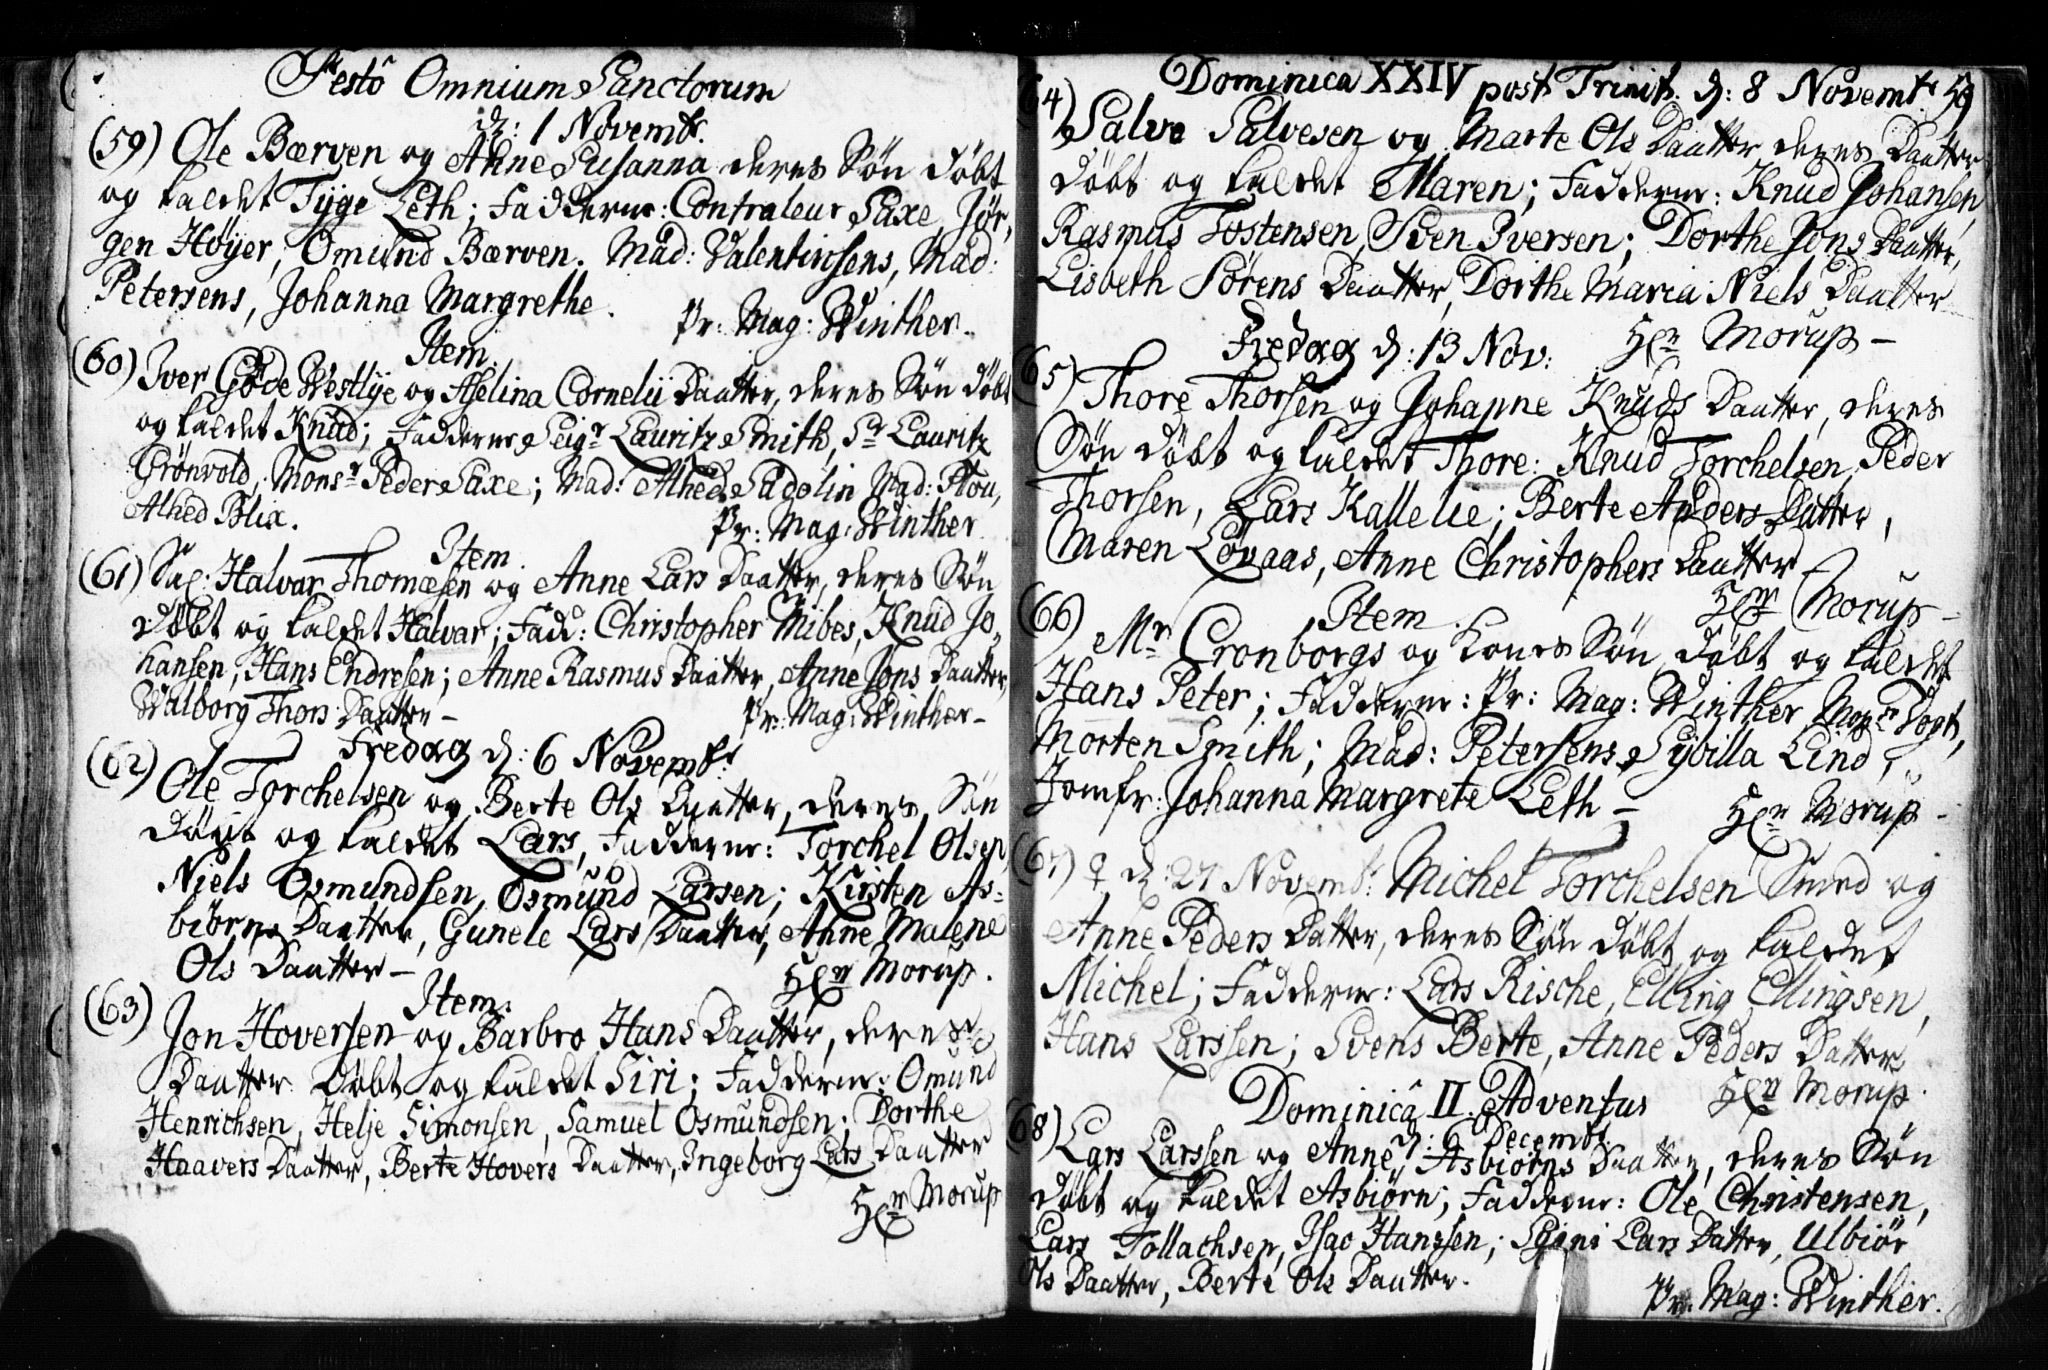 Festô Omnium Sanctorum
d: 1 Novembr.
(59) Ole Bærven og Anne Susanna deres Søn døbt
og kaldet Tÿge Leth; Fadderne: Contraleur Saxe, Jør,
gen Høÿer, Omund Bærven. Mad: Valentinsens, Mad:
Petersens, Johanna Margrethe.
Pr: Mag: Winther.
Item.
(60) Iver Gøde Westlÿe og Aselina Cornelii Daatter, deres Søn døbt
og kaldet Knud; Fadderne Seigr Lauritz Smith, Sr Lauritz
Grønvold, Monsr Peder Saxe; Mad: Alhed Sadolin Mad: Plou,
Alhed Blix.
Pr: Mag: Winther.
Item.
(61) Sal: Halvar Thomæsen og Anne Lars Daatter, deres Søn
døbt og kaldet Halvar; Fadd: Christopher Mibes, Knud Jo,
hansen, Hans Endresen; Anne Rasmus Daatter, Anne Jons Daatter,
Walborg Thors Daatter –
Pr: Mag: Winther –
Fredag d: 6 Novembr.
(62) Ole Torchelsen og Berte Ols Daatter, deres Søn
døbt og kaldet Lars, Fadderne: Torchel Olsen,
Niels Osmundsen, Osmund Larsen; Kirsten As-
biörns Daatter, Gunele Lars Daatter, Anne Malene
Ols Daatter –
Hr Morup.
Item.
(63) Jon Hoversen og Barbro Hans Daatter, deres
Daatter døbt og kaldet Siri; Fadderne: Omund
Henrichsen, Helje Simonsen, Samuel Osmundsen; Dorthe
Haavers Daatter, Berte Hovers Daatter, Ingeborg Lars Daatter
Hr Morup
Dominica XXIV post Trinit. d: 8 Novembr. 59
64) Salve Salvesen og Marte Ols Daatter deres Daatter
døbt og kaldet Maren; Fadderne: Knud Johansen,
Rasmus Tostensen, Sven Iversen; Dorthe Jons Daatter,
Lisbeth Sørens Daatter, Dorthe Maria Niels Daatter
Hr Morup –
Fredag d: 13 Nov:
65) Thore Thorsen og Johanne Knuds Daatter, deres
Søn døbt og kaldet Thore: Knud Torchelsen, Peder
Thorsen, Lars Kallelie; Berte Anders Datter,
Maren Løvaas, Anne Christophers Daatter
Hr Morup –
Item.
(66) Mr Cronborgs og Kones Søn døbt og kaldet
Hans Peter; Fadderne: Pr: Mag: Winther, Monsr Vogt,
Morten Smith; Mad: Petersens, Sÿbilla Lind,
Jomfr: Johanna Margrete Leth –
Hr Morup –
(67) ♀ d: 27 Novembr: Michel Torchelsen Smed og
Anne Peders Datter, deres Søn døbt og kaldet
Michel; Fadderne: Lars Rische, Elling Ellingsen,
Hans Larssen; Svens Berte, Anne Peders Datter
Hr Morup.
Dominicâ II. Adventus
d: 6 Decembr.
68) Lars Larssen og Anne Asbiørns Daatter, deres Søn
døbt og kaldet Asbiørn; Fadderne: Ole Christensen,
Lars Tollachsen, Isac Hanssen; Lars Datter, Ulbiør
Ols Daatter, Berte Ols Daatter.
Pr: Mag: Winther.